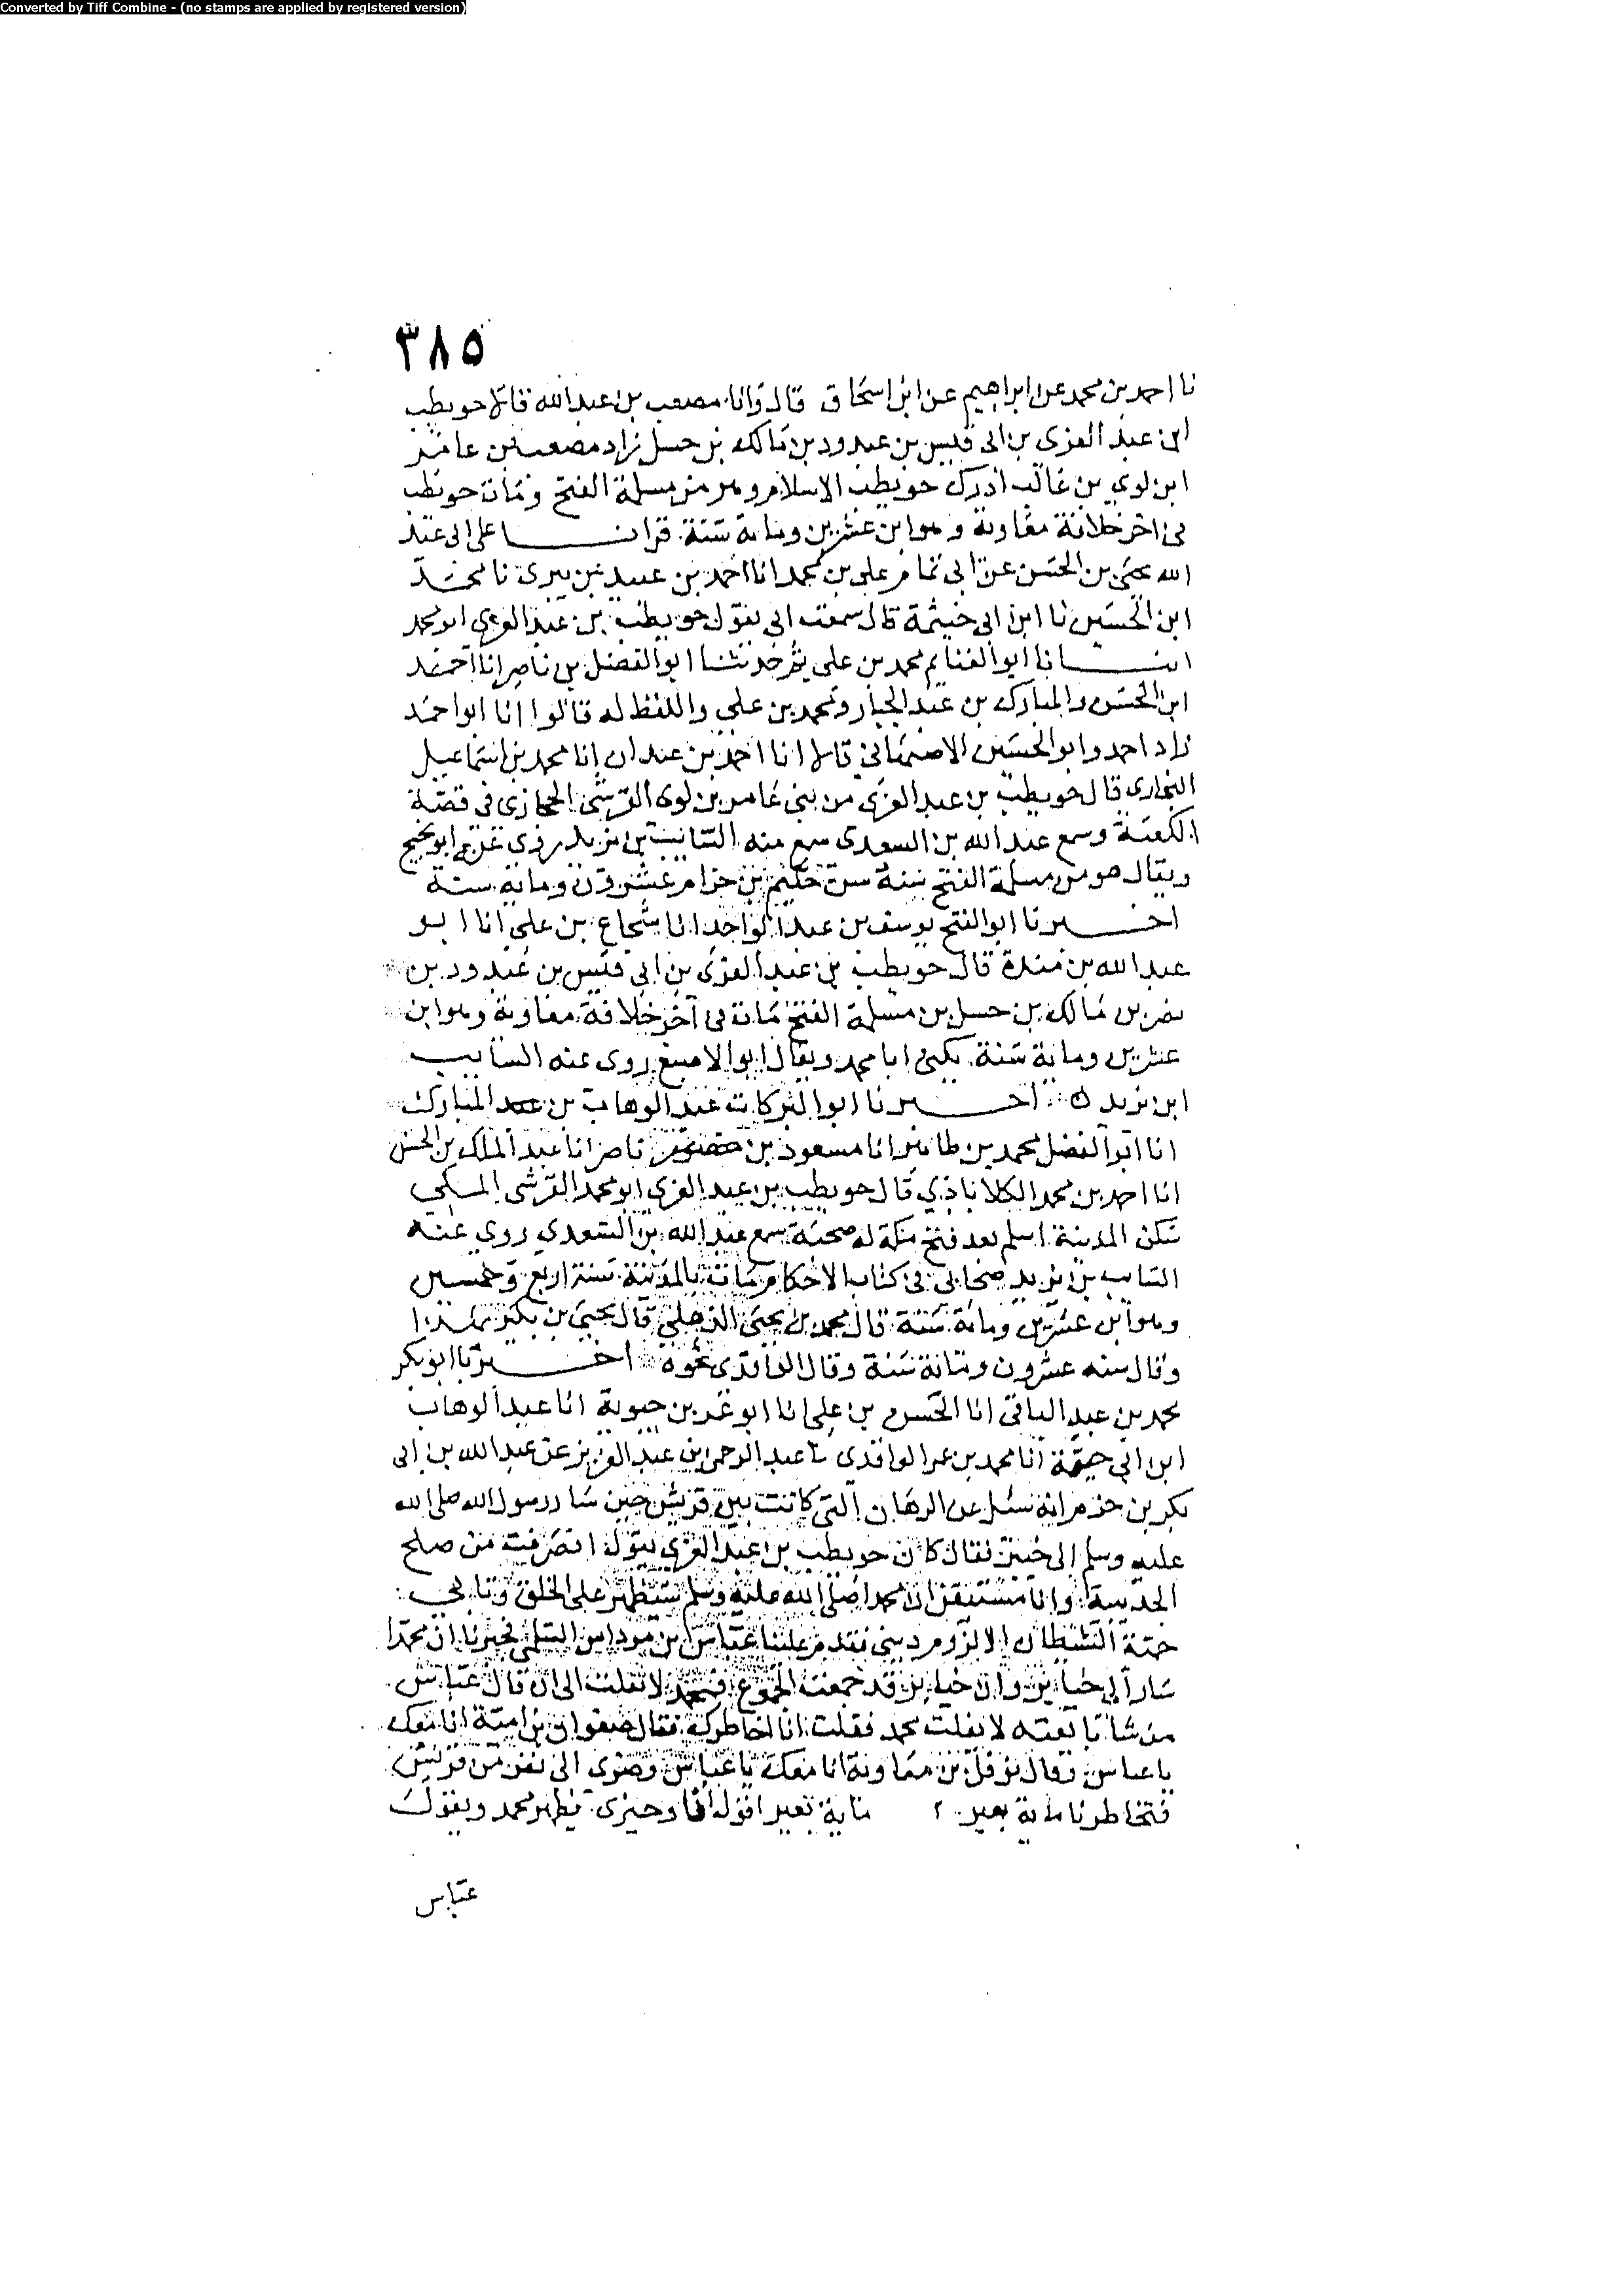 Converted by Tiff Combine - (no stamps are applied by registered version)
٣٨٥
نا احمد بن محمد عن ابراهيم عن ابن اسحاق قال وانا مصعب بن عبد الله قالا حويطب
ابن عبد العزى بن ابى قيس بن عبد ود بن مالك بن حسل زاد مصعب بن عامر
ابن لوي بن غالب ادرك حويطب الاسلام وهو من مسلمة الفتح ومات حويطب
فى اخر خلافة معاوية وهو ابن عشرين وماية سنة قرانا على ابى عبد
الله يحيى بن الحسن عن ابى تمام على بن محمد انا احمد بن عبيد بن بيرى نا محمد
ابن الحسين نا ابن ابى خيثمة قال سمعت ابى يقول حويطب بن عبد العزي ابو محمد
انبانا ابو الغنايم محمد بن على ثم حدثنا ابو الفضل بن ناصر انا احمد
ابن الحسن والمبارك بن عبد الجبار ومحمد بن علي واللفظ له قالوا انا ابو احمد
زاد احمد وابو الحسين الاصبهاني قالا انا احمد بن عبدان انا محمد بن اسماعيل
البخارى قال حويطب بن عبد العزى من بنى عامر بن لوى القرشى الحجازى فى قصة
الكعبة وسمع عبد الله بن السعدى سمع منه السائب بن يزيد روى عنه ابو نجيح
ويقال هو من مسلمة الفتح سنه سن حكيم بن حزام عشرون وماية سنة
اخبرنا ابو الفتح يوسف بن عبد الواحد انا شجاع بن على انا ابو
عبد الله بن مندة قال حويطب بن عبد العزى بن ابي قيس بن عبد ود بن
نصر بن مالك بن حسل من مسلمة الفتح مات فى آخر خلافة معاوية وهو ابن
عشرين وماية سنة يكنى ابا محمد ويقال ابو الاصبغ روى عنه السايب
ابن يزيد ه اخبرنا ابو البركات عبد الوهاب بن المبارك
انا ابو الفضل محمد بن طاهر انا مسعود بن ناصر انا عبد الملك بن الحسن
انا احمد بن محمد الكلاباذي قال حويطب بن عبد العزي ابو محمد القرشى المكي
سكن المدينة اسلم بعد فتح مكة له صحبة سمع عبد الله بن السعدي روي عنه
السايب بن يزيد صحابى فى كتاب الاحكام مات بالمدينة سنة اربع وخمسين
وهو ابن عشرين ومائة سنة قال محمد بن يحيى الذهلي قال يحيى بن بكير بهذا
وقال سنه عشرون ومائة سنة وقال الواقدى نحوه اخبرنا ابو بكر
محمد بن عبد الباقى انا الحسن بن على انا ابو عمر بن حيوية انا عبد الوهاب
ابن ابي حية انا محمد بن عمر الواقدى نا عبد الرحمن بن عبد العزيز عن عبد الله بن ابى
بكر بن حزم انه سئل عن الرهان التى كانت بين قريش حين سار رسول الله صلى الله
عليه وسلم الى خيبر فقال كان حويطب بن عبد العزي يقول انصرفت من صلح
الحديبية وانا مستيقن ان محمدا صلى الله عليه وسلم سيظهر على الخلق وتابى
حمية الشيطان الا لزوم دينى فقدم علينا عباس بن مرداس السلمى فخبرنا ان محمدا
سار الى خيابر وان خيابر قد جمعت الجموع فمحمد لا يفلت الى ان قال عباس
من شا بايعته لا يفلت محمد فقلت انا اخاطرك فقال صفوان بن امية انا معك
يا عباس وقال نوفل بن معاوية انا معك يا عباس وضوى الى نفر من قريش
فتخاطرنا ماية بعير ماية بعير اقول انا وحيزى يظهر محمد ويقول
عباس